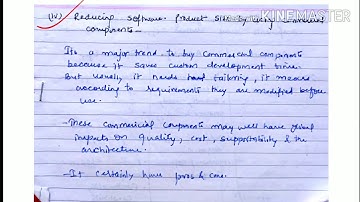 Made With
KINEMASTER
(iv) Reducing Software Product Size By using Commercial
components-
Its a major trend to buy commercial components
because it saves custom development time.
But usually it needs tailoring, it means
according to requirements they are modified before
use.
- These commercial components may well have global
impacts on quality, cost, supportability & the
architecture.
- It certainly have pros & cons.